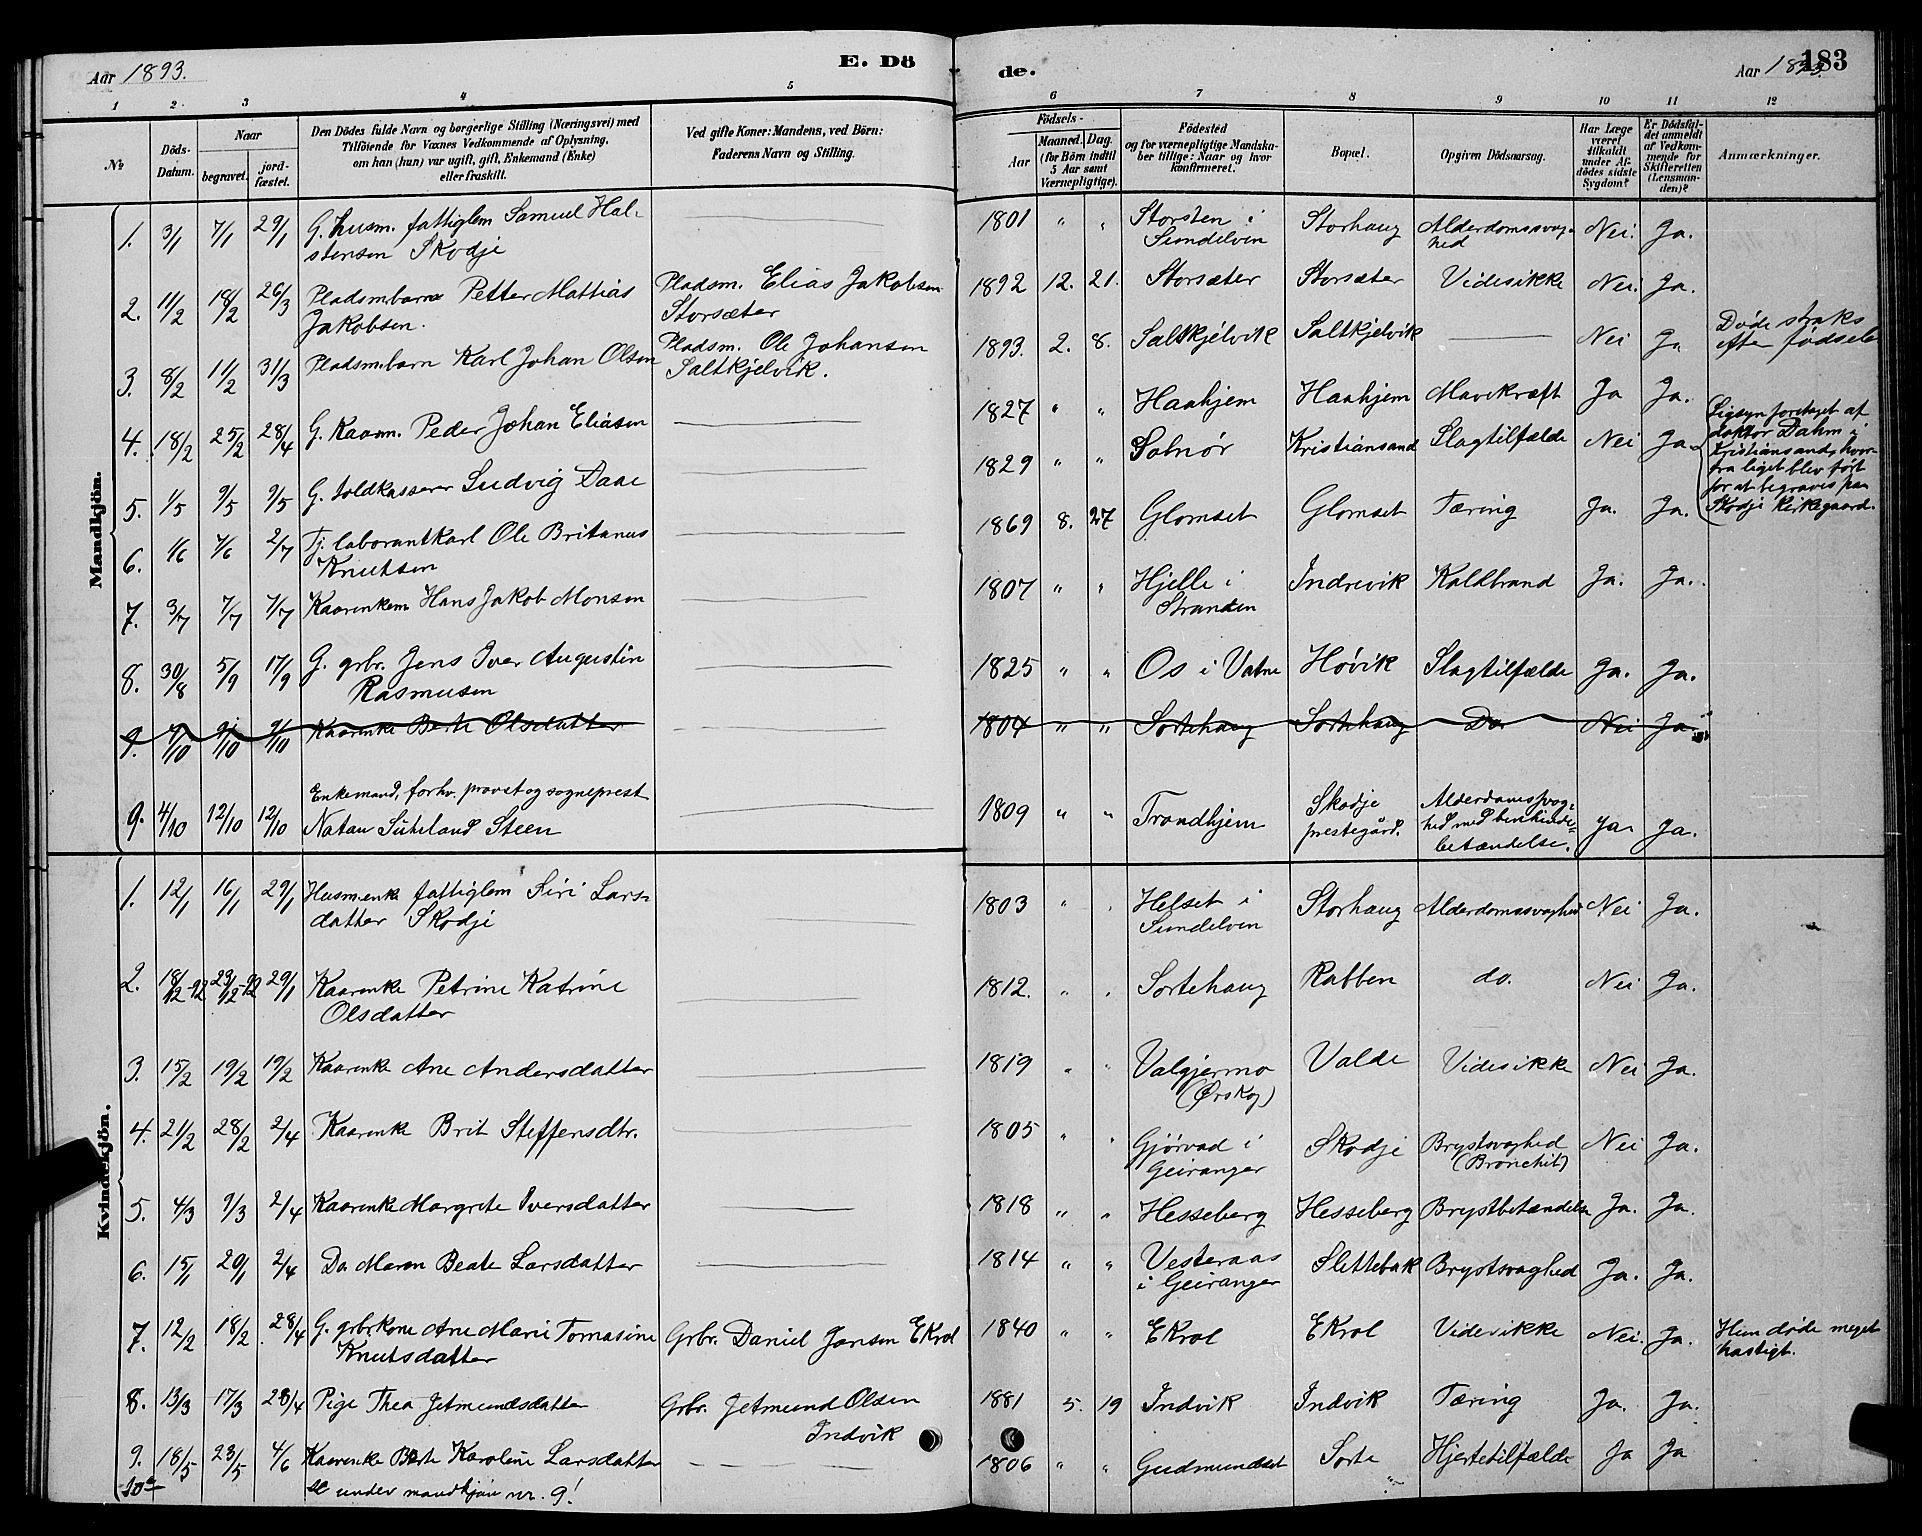 Aar 1893.
E. Dö
de.
Aar 1893.
183
1 2 3 4 5 6 7 8 9 10 11 12
№
Döds-Datum.
Naar
begravet. jord-fæstet.
Den Dödes fulde Navn og borgerlige Stilling (Næringsvei) med
Tilföiende for Voxnes Vedkommende af Oplysning,
om han (hun) var ugift, gift, Enkemand (Enke)
eller fraskilt.
Ved gifte Koner: Mandens, ved Börn:
Faderens Navn og Stilling.
Födsels-
Aar
Maaned. Dag.
(for Börn indtil
5 Aar samt
Værnepligtige).
Födested
og for værnepligtige Mandska-
ber tillige: Naar og hvor
konfirmeret.
Bopæl.
Opgiven Dödsaarsag.
Har Læge
været
tilkaldt
under Af-
dödes sidste
Sygdom?
Er Dödsfal-
det anmeldt
af Vedkom-
mende for
Skifteretten
(Lensman-
den)?
Anmærkninger.
Mandkjön.
1. 3/1 7/1 29/1 G. husm. fattiglem Samuel Hal-
stensen Skodje
1801 " " Storsten i
Sundelven
Storhaug Alderdomssvag-
hed
Nei. Ja.
2. 11/2 18/2 26/3 Pladsmbarn Petter Mattias
Jakobsen.
Pladsm. Elias Jakobsen
Storsæter
1892 12. 21. Storsæter Storsæter Videsikke Nei. Ja.
3. 8/2 11/2 31/3 Pladsmbarn Karl Johan Olsen
Pladsm. Ole Johansen
Saltkjelvik.
1893. 2. 8. Saltkjelvik Saltkjelvik Nei Ja
Døde straks
efter fødselen
4. 18/2 25/2 28/4 G. Kaarm. Peder Johan Eliasen
1827 " " Haahjem Haahjem Mavekræft Ja Ja.
5. 1/5 9/5 9/5 G. toldkasserer Ludvig Daae
1829 " " Solnør Kristiansand Slagtilfælde Nei Ja
Ligsyn foretaget af
doktor Dahm i
Kristiansand, hvor-
fra liget blev ført
for at begraves paa
Skodje kirkegaard.
6. 1/6 7/6 2/7 Tj. laborantkarl Ole Britanus
Knutsen
1869 8. 27 Glomset Glomset Tæring Ja. Ja.
7. 3/7 7/7 7/7 Kaarenkem Hans Jakob Monsen
1807 " " Hjelle i
Stranden
Indrevik Koldbrand Ja. Ja.
8. 30/8 5/9 17/9 G. grbr. Jens Iver Augustin
Rasmusen
1825 " " Os i Vatne Høvik Slagtilfælde Ja. Ja.
9. 4/10 9/10 9/10 Kaarenke Berte Olsdatter
1804 " " Sortehaug Sortehaug Do Nei Ja.
9. 4/10 12/10 12/10 Enkemand, forhv. provst og sogneprest
Natan Steen
1809 " " Trondhjem Skodje
prestegård.
Alderdomssvag-
hed med
betændelse.
Ja. Ja.
Kvindekjön.
1. 12/1 16/1 29/1 Husmenke fattiglem Siri Lars-
datter Skodje
1803 " " Helset i
Sundelven
Storhaug Alderdomssvaghed Nei Ja.
2. 18/12-92 23/12-92 29/1 Kaarenke Petrine Katrine
Olsdatter
1812. " " Sortehaug Rabben do. Nei Ja.
3. 15/2 19/2 19/2 Kaarenke Ane Andersdatter
1819 " " Valgjermo
(Ørskog)
Valde Videsikke Nei Ja.
4. 21/2 28/2 2/4 Kaarenke Brit Steffensdtr.
1805 " " Gjørvad i
Geiranger
Skodje Brystsvaghed
(Bronchit)
Nei Ja.
5. 4/3 9/3 2/4 Kaarenke Margrete Iversdatter
1818 " " Hesseberg Hesseberg Brystbetændelse Ja. Ja.
6. 15/1 20/1 2/4 Do Maren Beate Larsdatter
1814 " " Vesteraas
i Geiranger
Slettebak Brystsvaghed Ja. Ja.
7. 12/2 18/2 28/4 G. grbrkone Ane Marie Tomasine
Knutsdatter
Grbr. Daniel Jansen Ekrol
1840 " " Ekrol Ekrol Videsikke Nei. Ja.
Hun døde meget
hastigt.
8. 13/3 17/3 28/4 Pige Thea Jetmundsdatter
Grbr. Jetmund Olsen
Indvik
1881 5. 19 Indvik Indvik Tæring Ja. Ja.
9. 18/5 23/5 4/6 Kaarenke Berte Karoline Larsdatter
1806 " " Gudmundset Sorte Hjertetilfælde Ja Ja
10
se under mandkjøn nr. 9!